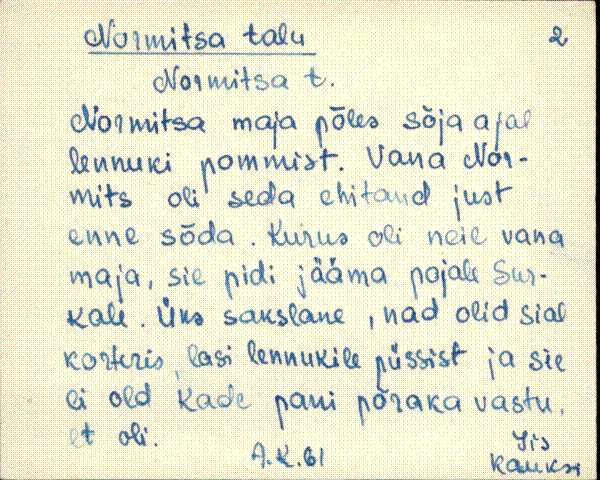 Normitsa talu 2
Normitsa t.
Normitsa maja põles sõja ajal
lennuki pommist. Vana Nor-
mits oli seda ehitand just
enne sõda. Kurus oli neil vana
maja, sie pidi jääma pojale Sur-
kale. Üks sakslane, nad olid sial
korteris, lasi lennukile püssist ja sie
li old kade pani põraka vastu,
et oli.
A.K.61 Iis
Kauksi